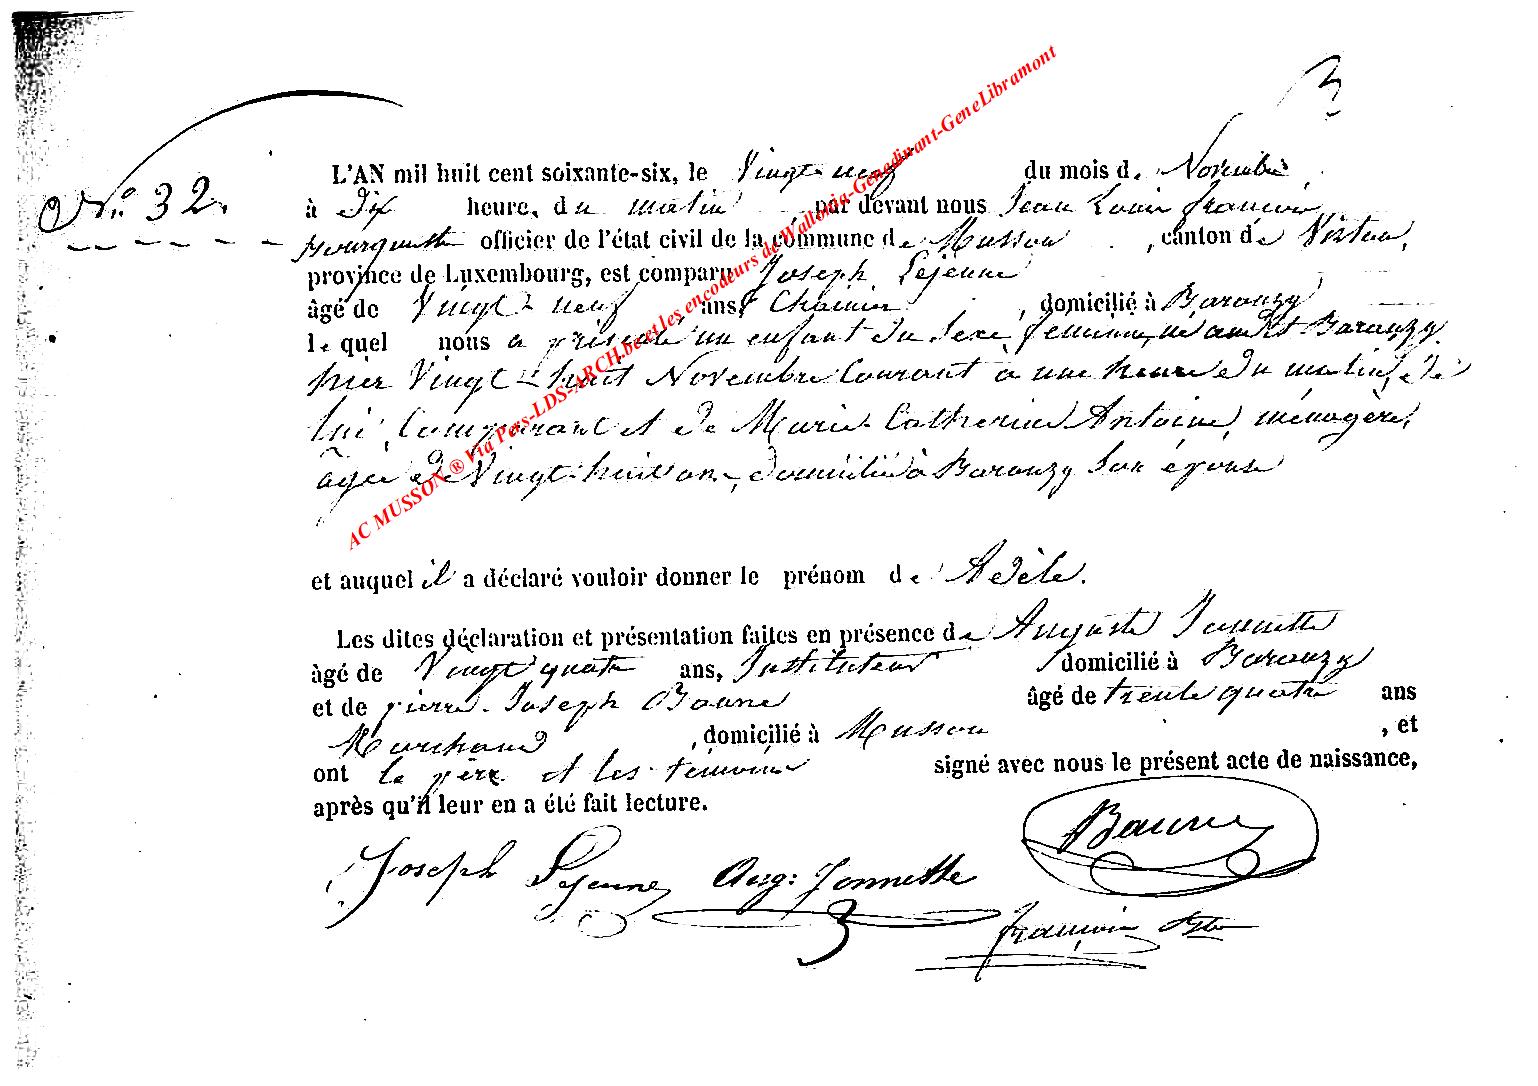 N.° 32.
L'AN mil huit cent soixante-six, le Vingt-neuf du mois de Novembre
à Dix heure, du matin, par devant nous Jean Louis François
officier de l'état civil de la commune de Musson, canton de Virton,
province de Luxembourg, est comparu Joseph Lejeune
âgé de Vingt-neuf ans, domicilié à Baranzy
lequel nous a présenté un enfant du Sexe féminin, né audit Baranzy
hier Vingt-huit Novembre Courant à une heure du matin, de
lui Comparant et de Marie Catherine Antoine, ménagère,
âgée de Vingt-huit ans, domiciliée à Baranzy Son épouse
et auquel il a déclaré vouloir donner le prénom de Adèle.
Les dites déclaration et présentation faites en présence de Auguste Jonnette
âgé de Vingt quatre ans, Instituteur domicilié à Baranzy
et de pierre-Joseph Baune âgé de trente quatre ans
Marchand, domicilié à Musson, et
ont le père et les témoins signé avec nous le présent acte de naissance,
après qu'il leur en a été fait lecture.
Baune
Joseph Lejeune Aug: Jonnette
françois
AC MUSSON ® Via Pers-LDS-ARCH.be et les encodeurs de Wallonia-Genedinant-GeneLibramont